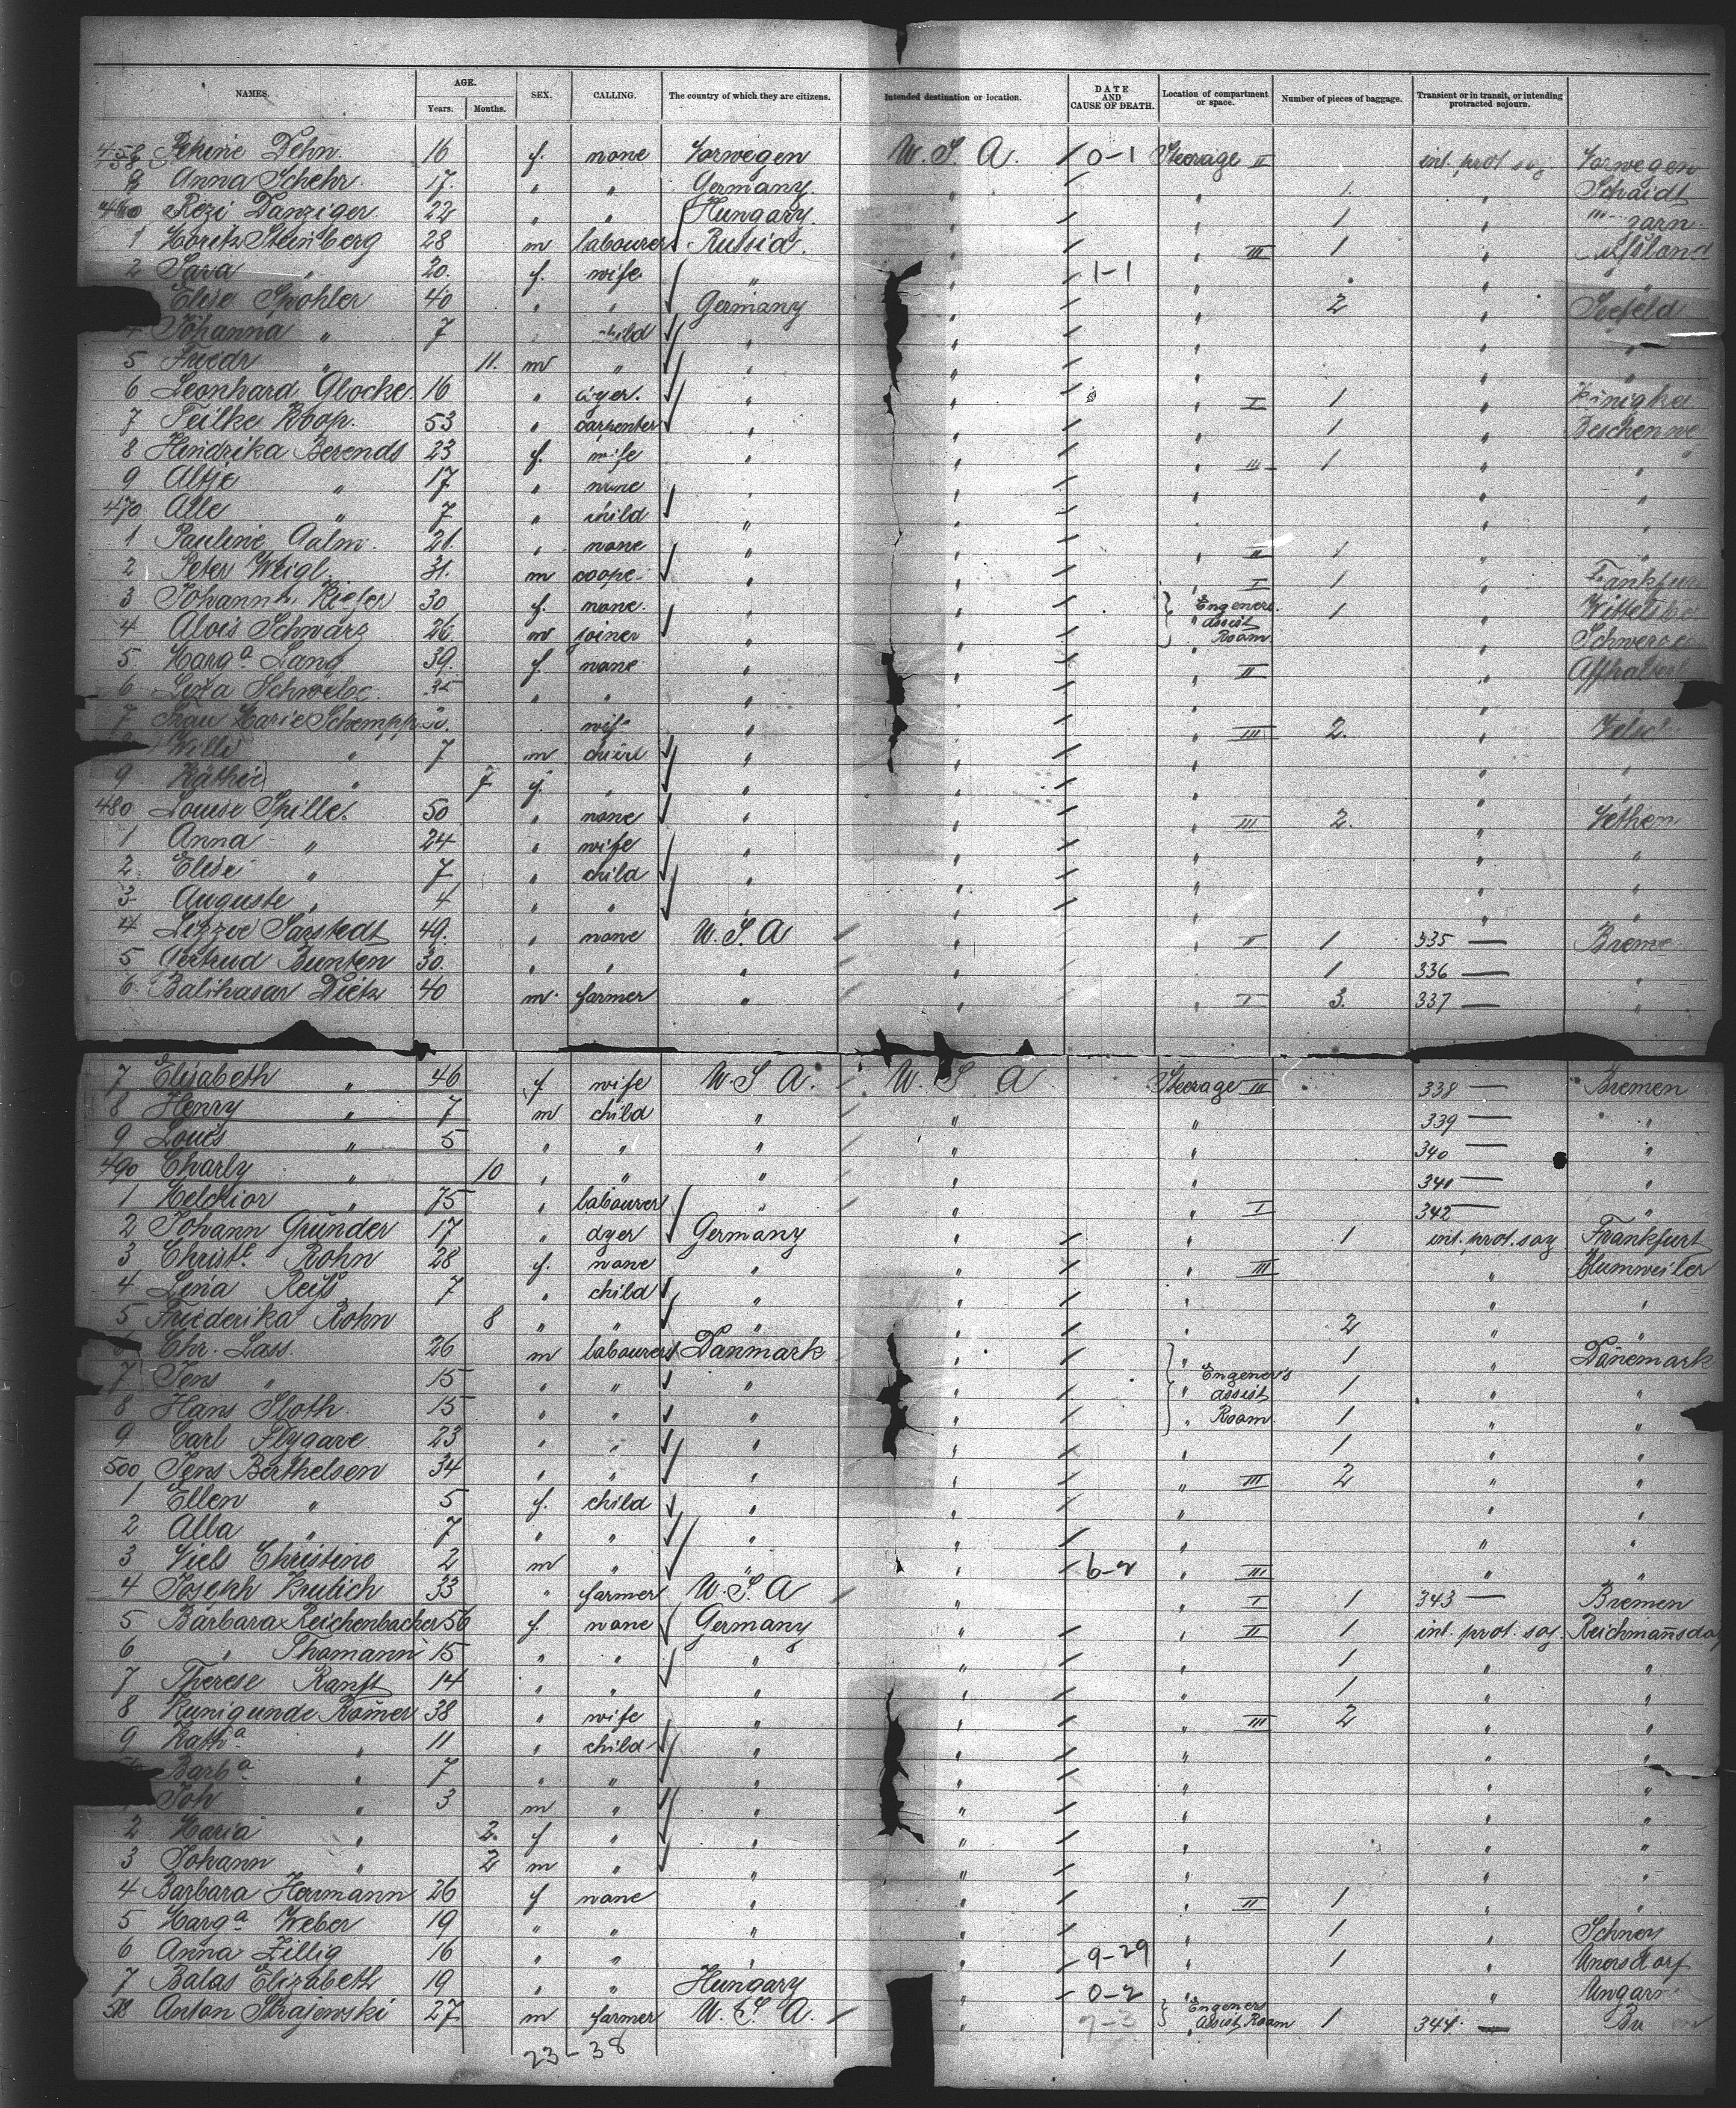 NAMES. AGE. Years. Months. SEX. CALLING. The country of which they are citizens. Intended destination or location. DATE AND CAUSE OF DEATH. Location of compartment or space. Number of pieces of baggage. Transient or in transit, or intending protracted sojourn.
458 Dehn. 16 f. none Norwegen U. S. A. 0-1 Steerage II int. prot. soj Norwegen
9 Anna Schehr. 17. " " Germany. " " 1. " Schaidt
460 Rezi Danziger. 22 " " Hungary. " " 1 " garn
1 Moritz Steinberg 28 m labourer Russia. " " III 1 "
2 Sara " 20. f. wife " " 1-1 " "
Elise Spohler 40 " " Germany " " 2 " Seefeld
4 Johanna " 7 child " " " " "
5 Friedr " 11. m " " " " " "
6 Leonhard Glocke. 16 " " " " I 1 "
7 Teilke Koop. 53 " carpenter " " " 1 "
8 Hendrika Berends 23 f. wife " " " III 1 " "
9 Altje " 17 " none " " " " "
470 Alle " 7 " child " " " " "
1 Pauline 21. " none " " " II 1 " "
2 Peter Weigl. 31. m coope " " " I 1 "
3 Johann Kiefer 30 f. none. " " Engeners 1 "
4 Alois Schwarz 26 m joiner " " " assist Room "
5 Marga Lang 39. f. none " " " II "
6 " " " " " "
7 Frau Marie Schempp wife " " III 2. "
Willi " 7 m child " " " " "
9 Käthie " 7 f. " " " " " "
480 Louise Spille. 50 " none " " " III 2. " Vethen
1 Anna " 24 " wife " " " " "
2 Elise " 7 " child " " " " "
3 Auguste " 4 " " " " " " "
4 Lizzie Sarstedt 49. " none U. S. A " " I 1 335 — Breme
5 Gertrud Bunten 30. " " " " " 1 336 — "
6 Balthasar Dietz 40 m. farmer " " " I 3. 337 — "
7 Elisabeth " 46 f wife U. S A. U. S A Steerage III 338 — Bremen
8 Henry " 7 m child " " " 339 — "
9 Louis " 5 " " " " " 340 — "
490 Charly " 10 " " " " " 341 — "
1 Melchior " 75 " labourer " " " I 342 — "
2 Johann Gründer 17 " dyer Germany " " 1 int. prot. soj Frankfurt
3 Christe. Rohn 28 f. none " " " III " Blumweiler
4 Lina Reiss 7 " child " " " " "
5 Friederika Rohn 8 " " " " " 2 " "
Chr. Lass. 26 m labourer Danmark " " 1 " Dänemark
7 Jens " 15 " " " " " Engener's assist 1 " "
8 Hans Sloth. 15 " " " " " Room 1 " "
9 Carl Flygare. 23 " " " " " 1 " "
500 Jens Berthelsen 34 " " " " " III 2 " "
1 Ellen " 5 f. child " " " " "
2 Alba " 7 " " " " " " "
3 Niels Christine 2 m " " " 6-2 " III " "
4 Joseph 33 " farmer U. S. A " " I 1 343 — Bremen
5 Barbara Reichenbacher 56 f. none Germany " " II 1 int. prot. soj. Reichmannsdo
6 " Thomann 15 " " " " " 1 " "
7 Therese Ranft 14 " " " " " 1 " "
8 Kunigunde Römer 38 " wife " " " III 2 " "
9 Katha " 11 " child " " " " "
Barba " 7 " " " " " " "
Joh " 3 m " " " " " "
2 Maria " 2. f " " " " " "
3 Johann " 2 m " " " " " "
4 Barbara Herrmann 26 f none " " " II 1 " "
5 Marga Weber 19 " " " " " 1 " Schney
6 Anna Zillig 16 " " " " 9-29 " 1 " Unersdorf
7 Balas Elizabeth 19 " " Hungary " 0-2 " " Ungarn
518 Anton Strajewski 27 m farmer U. S. A. " 7-3 Engeners Assist, Room 1 344. —
23-38